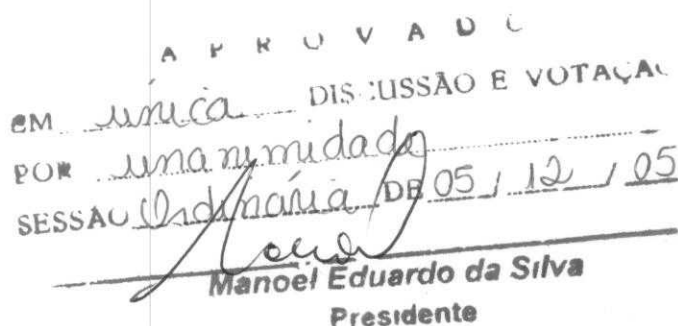 APROVADO
EM única DISCUSSÃO E VOTAÇÃO
POR unanimidade
SESSÃO Ordinária DE 05 / 12 / 05
Manoel Eduardo da Silva
Presidente